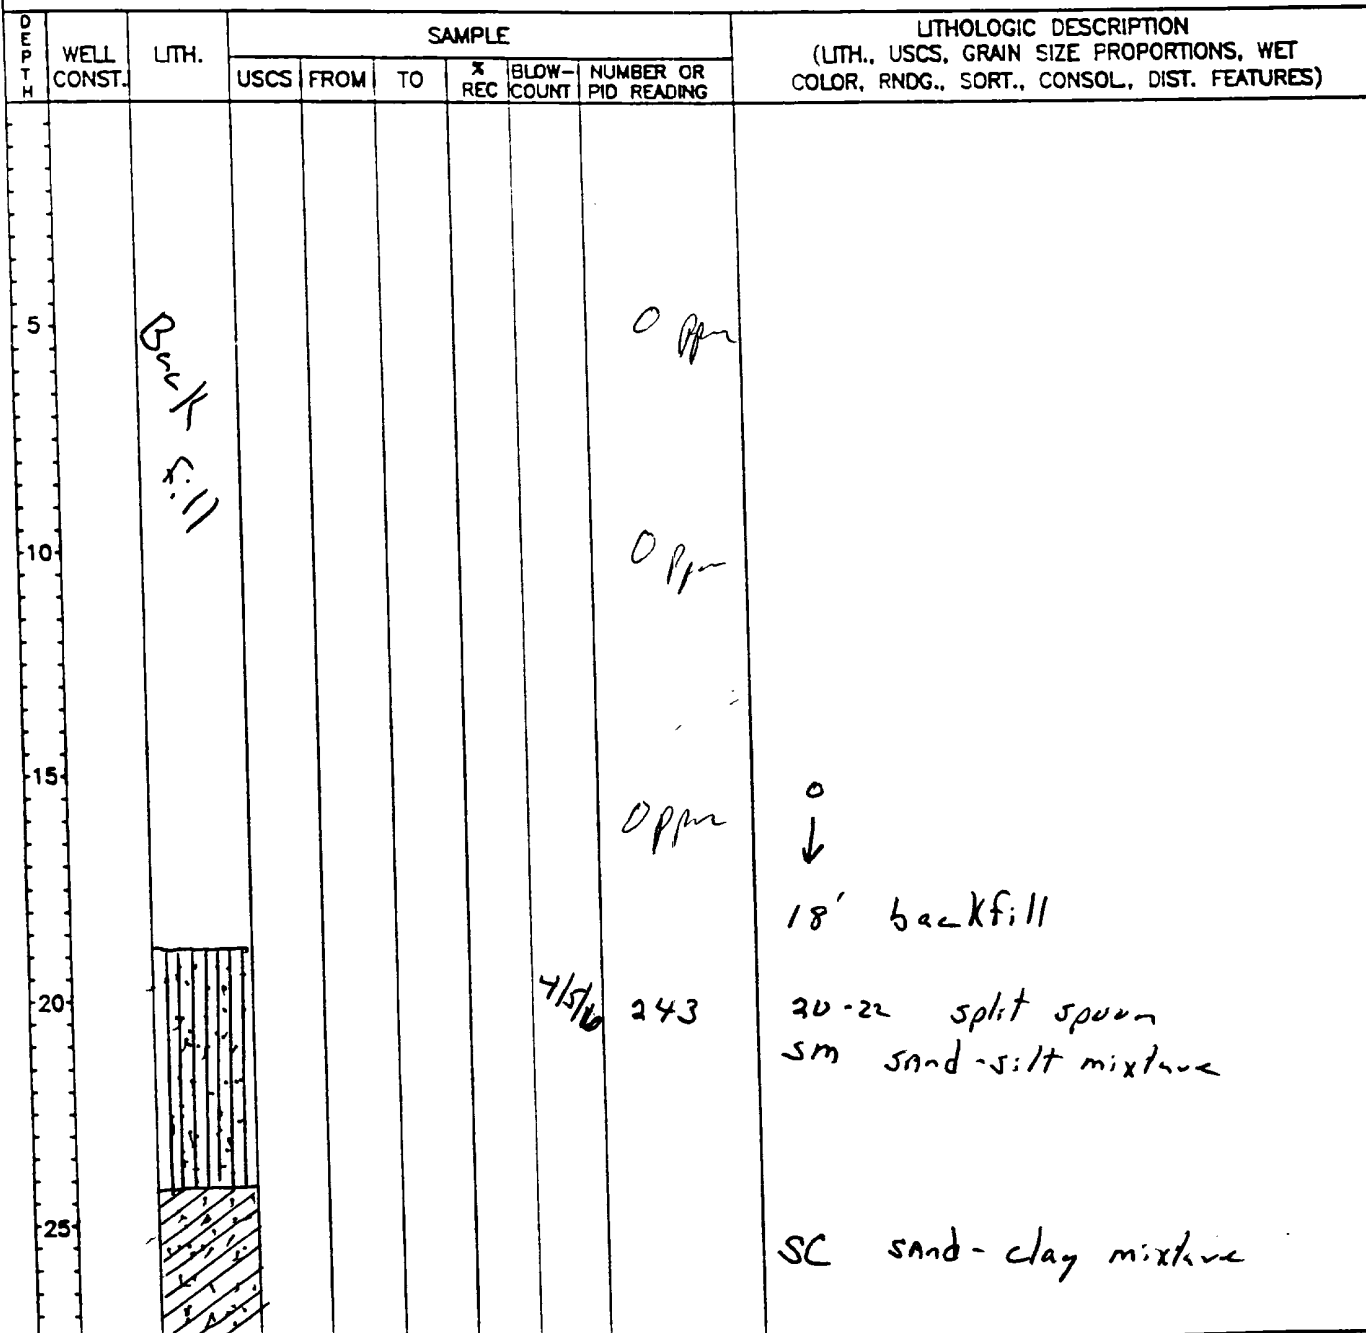 DEPTH
WELL CONST.
LITH.
SAMPLE
USCS
FROM
TO
% REC
BLOW-COUNT
NUMBER OR PID READING
LITHOLOGIC DESCRIPTION
(LITH., USCS, GRAIN SIZE PROPORTIONS, WET
COLOR, RNDG., SORT., CONSOL., DIST. FEATURES)
5
Back fill
0 ppm
10
0 ppm
15
0 ppm
0
↓
18' backfill
20
243
20-22 split spoon
SM sand-silt mixture
25
SC sand-clay mixture